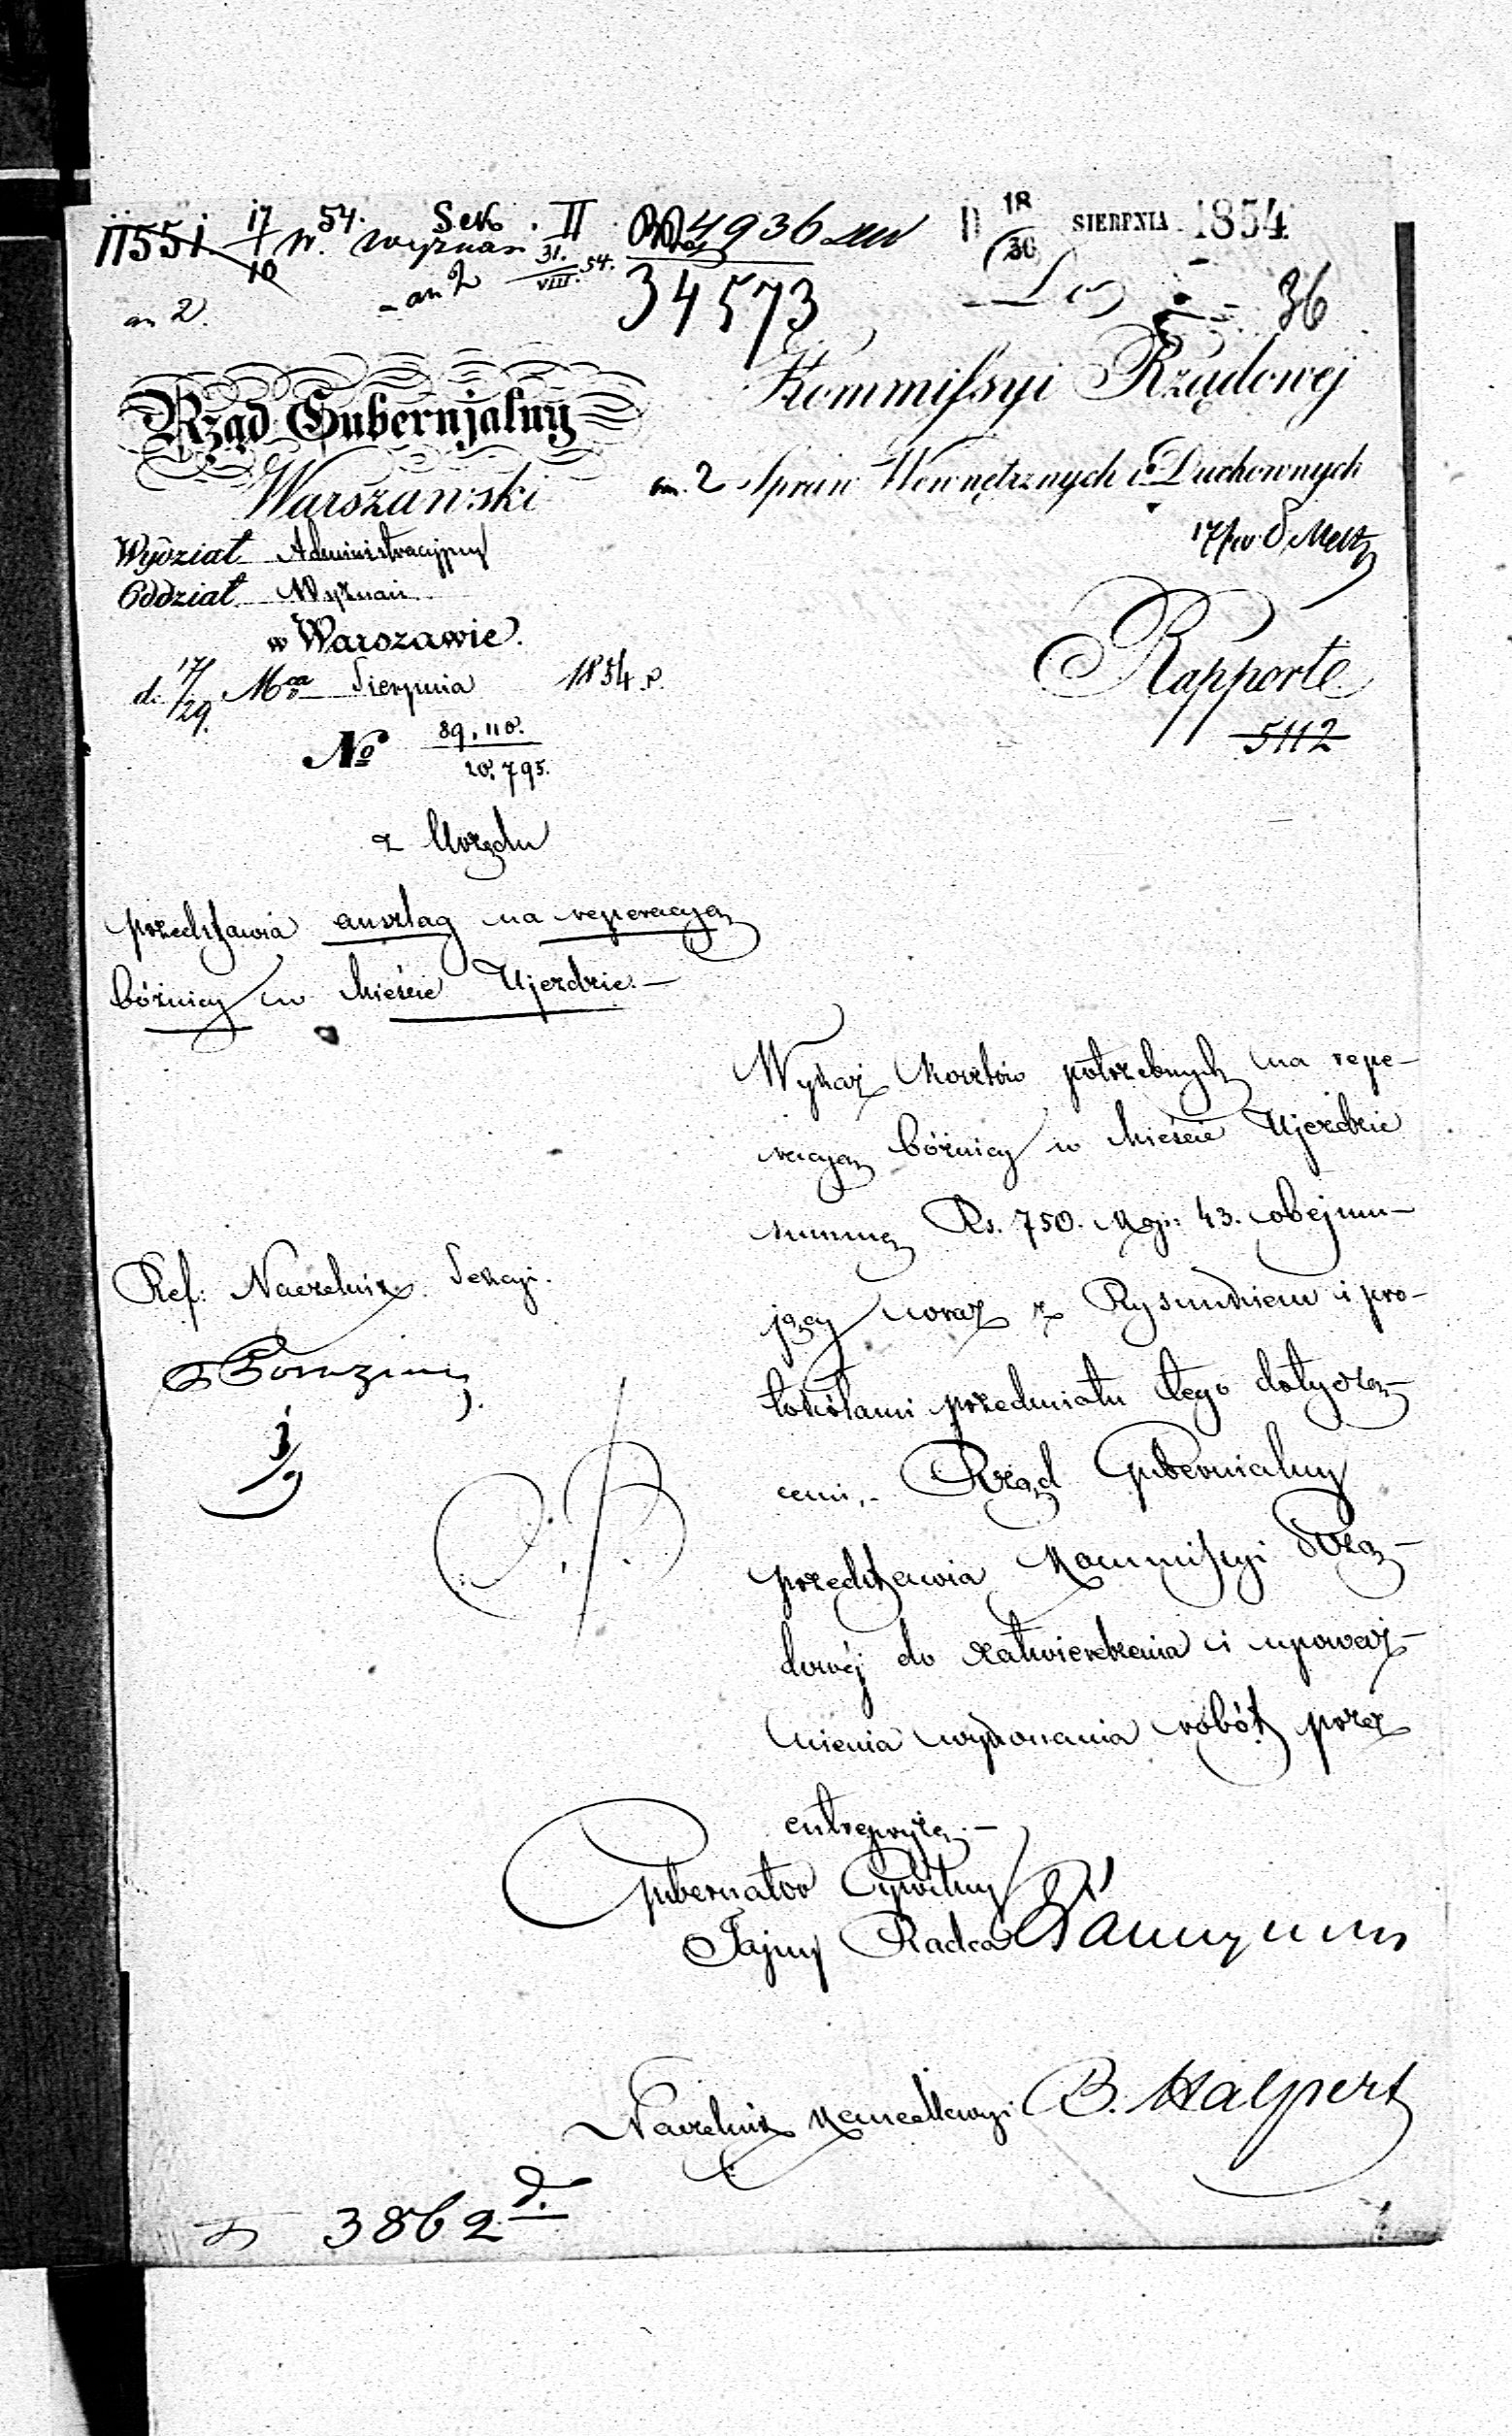 11551. 17/10 54. Sek. II 4936
Wyznań 31./VIII. 54.
an 2. an 2 34573
D 18/30 SIERPNIA 1854
36
Rząd Gubernjalny
Warszawski
Wydział Administracyjny
Oddział Wyznań
w Warszawie.
d. 17/29. Mca Sierpnia 1854 r.
No 89,110. / 20,795.
z Urzędu
przedstawia anszlag na reperacyą
bóżnicy w Mieście Ujezdzie.—
Kommissyi Rządowej
an. 2 Spraw Wewnętrznych i Duchownych
Rapport
5112
Wykaz kosztów potrzebnych na repe-
racyą bóżnicy w Mieście Ujezdzie
summę Rs. 750. kop: 43. obejmu-
jący wraz z Rysunkiem i pro-
tokółami przedmiotu tego dotyczą-
cemi,- Rząd Gubernialny
przedstawia Kommissyi Rzą-
dowéj do zatwierdzenia i upoważ-
nienia wykonania robót przez
entrepryzę.—
Ref: Naczelnik Sekcyi.
Gubernator Cywilny
Tajny Radca
Naczelnik Kancellaryi B. Halpert
3862